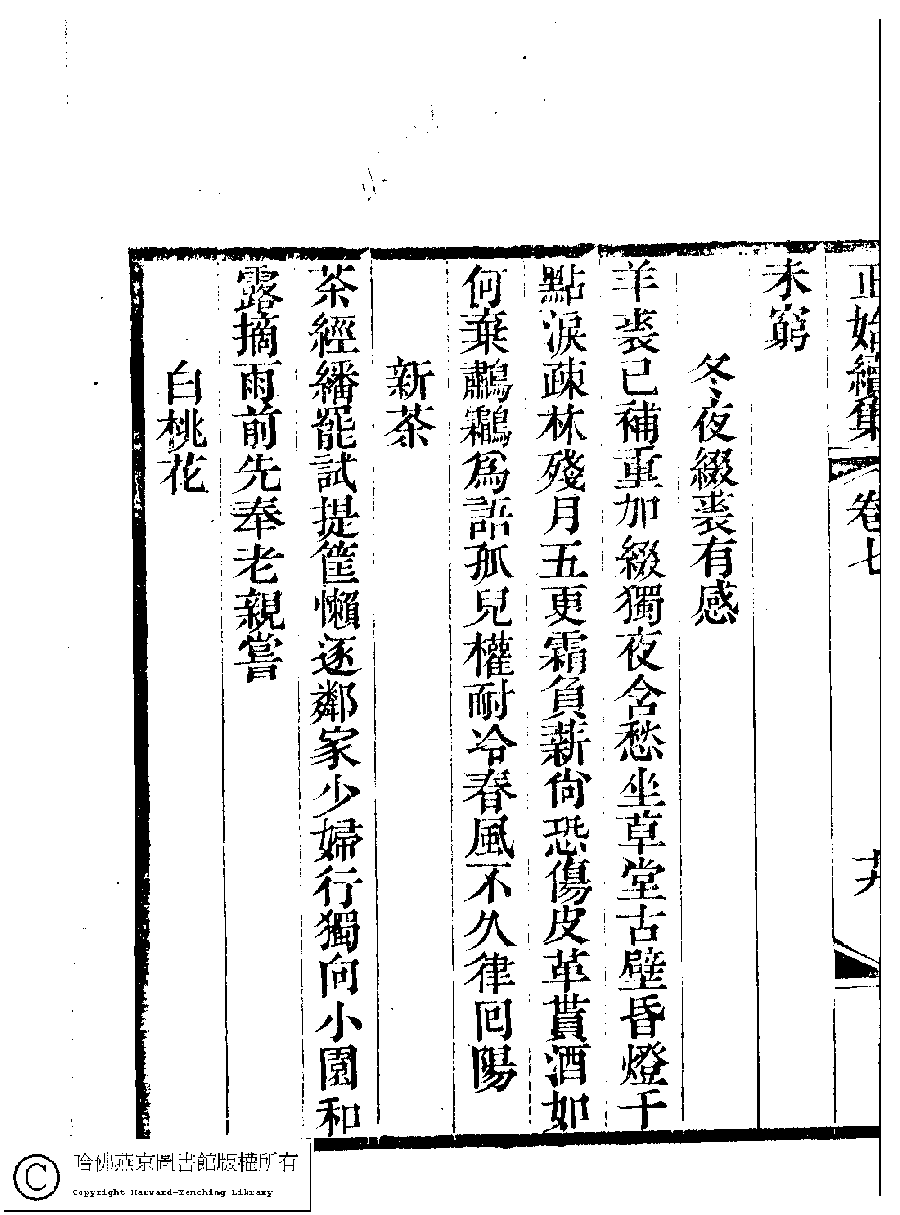 正始續集 卷七
未窮
冬夜綴裘有感
羊裘已補重加綴獨夜含愁坐草堂古壁昏燈千
點淚疎林殘月五更霜負薪尙恐傷皮革貰酒如
何棄鷫鸘爲語孤兒權耐冷春風不久律囘陽
新茶
茶經繙罷試提筐懶逐鄰家少婦行獨向小園和
露摘雨前先奉老親嘗
白桃花
哈佛燕京圖書館版權所有
Copyright Harvard-Yenching Library